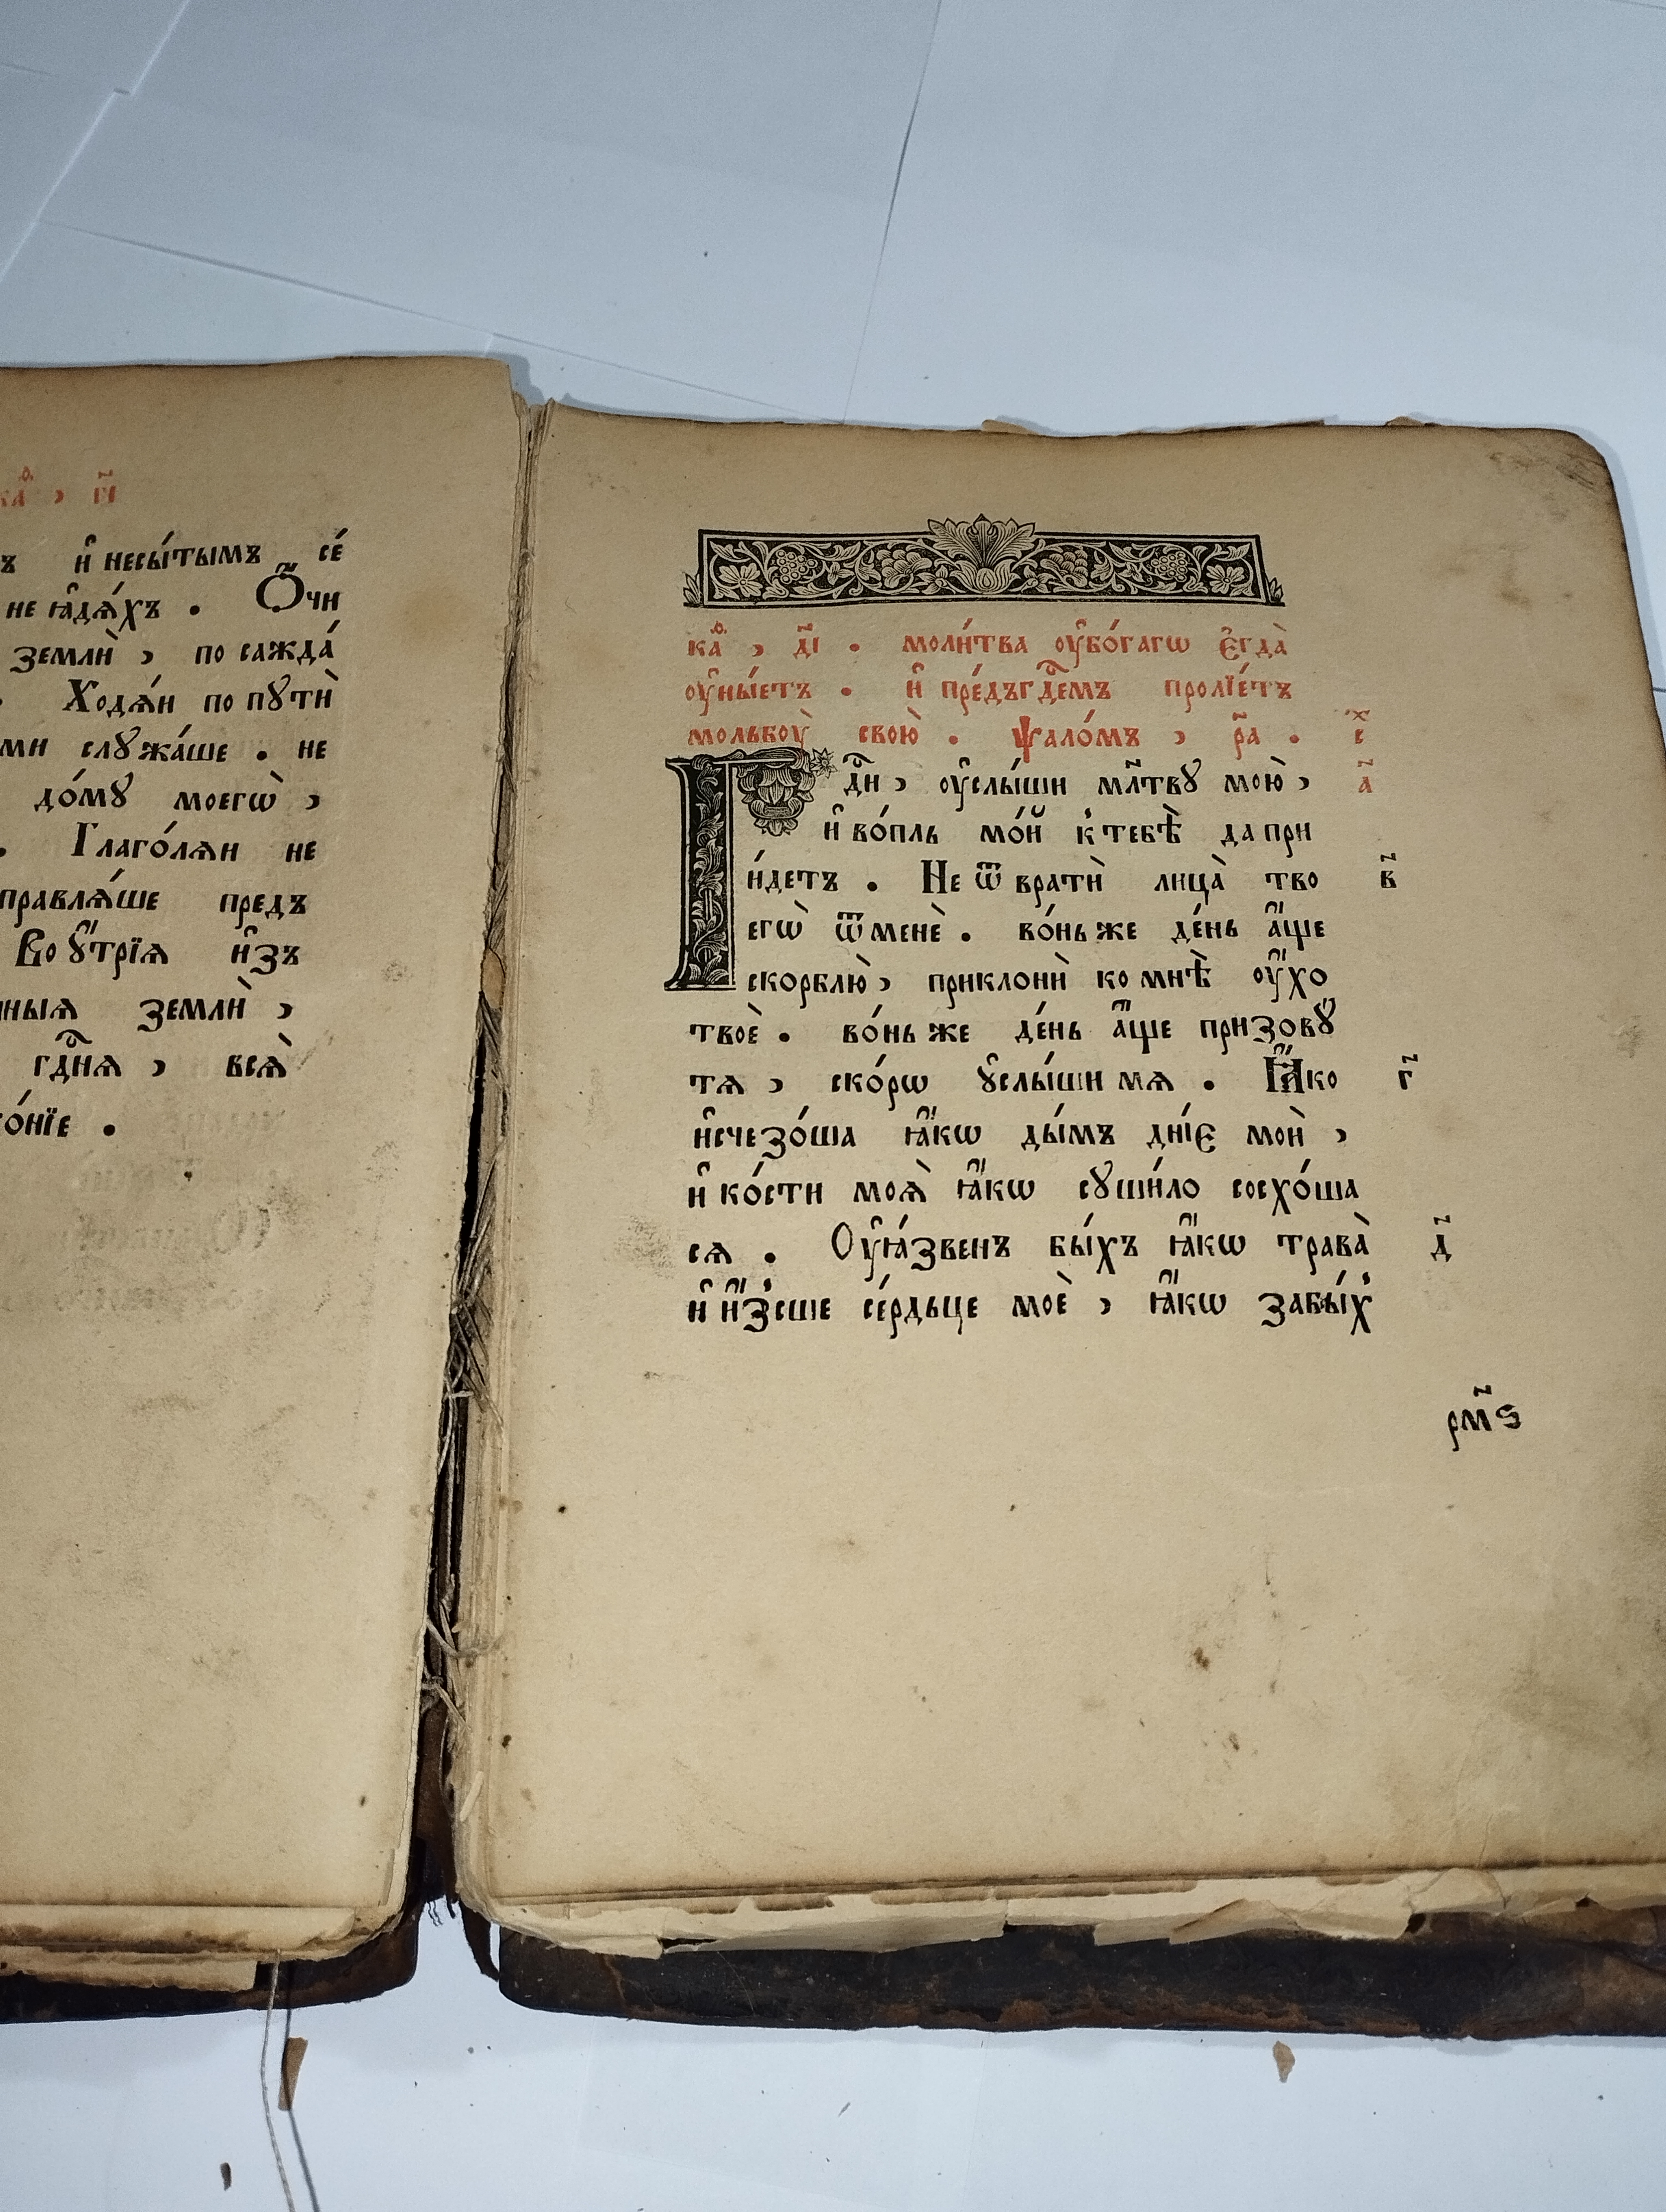 ка̑ѳ , г҃і
ъ и҆ несы́тымъ се́
не ꙗ҆дѧ́хъ . Ѻ҆́чи
землѝ , по сажда́
. Ходѧ́и по пꙋтѝ
ми слꙋжа́ше . не
до́мꙋ моегѡ̀ ,
. Глаго́лѧи не
правлѧ́ше предъ
Во ᲂу҆́трїѧ и҆зъ
ныѧ землѝ ,
гдⷭ҇нѧ , всѧ̀
ко́нїе .
каѳ , д҃і . моли́тва ᲂу҆бо́гагѡ є҆гда̀
ᲂу҆ны́етъ . и҆ пре́дъ гдⷭ҇емъ пролїе́тъ
мольбоу̀ свою̀ . ѱало́мъ , р҃а . с̾
Гдⷭ҇и , ᲂу҆слы́ши мл҃твꙋ мою̀ , а҃
и҆ во́пль мо́й к̾ тебѣ̀ да прі
и́детъ . Не ѿ вратѝ лица̀ тво в҃
егѡ̀ ѿ менѐ . во́ньже де́нь а҆́ще
скорблю̀ , приклонѝ ко мнѣ̀ ᲂу҆́хо
твоѐ . во́ньже де́нь а҆́ще призовꙋ̀
тѧ , ско́рѡ ᲂу҆слы́ши мѧ . Ꙗ҆́ко г҃
и҆счезо́ша ꙗ҆́кѡ ды́мъ дні́є моѝ ,
и҆ ко́сти моѧ̀ ꙗ҆́кѡ сꙋши́ло сосхо́ша
сѧ . Оу҆ꙗ́звенъ бы́хъ ꙗ҆́кѡ трава̀ д҃
и҆ и҆́з̾сше се́рдьце моѐ , ꙗ҆́кѡ забы́х̾
рм҃ѕ